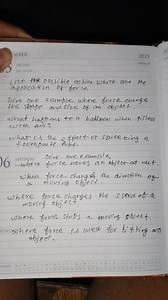 2025
List the possible action where are the
application of force.
Give one example where force change
the shape and size of an object.
What happens to a balloon when filled
with air?
What is the effect of squeezing a
toothpaste tube.
06
Give one example
where force moves an object at rest.
When force changes the direction of
a moving object.
Where force changes the speed of a
moving object
Where force stops a moving object.
Where force is used for lifting an
object.